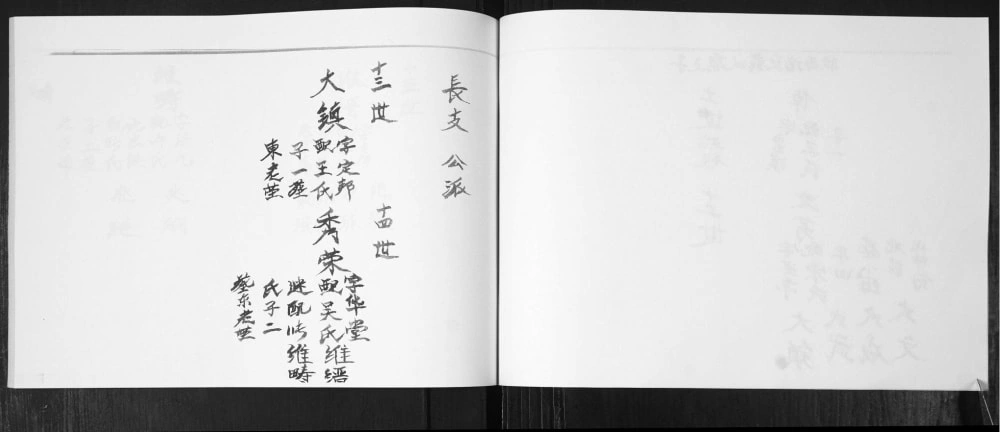 長支 公派
十三世
大鎮
字定邦
配王氏
子一葬
東老茔
十四世
秀荣
字华堂
配吴氏維縉
継配 維疇
氏子二
葬东老茔